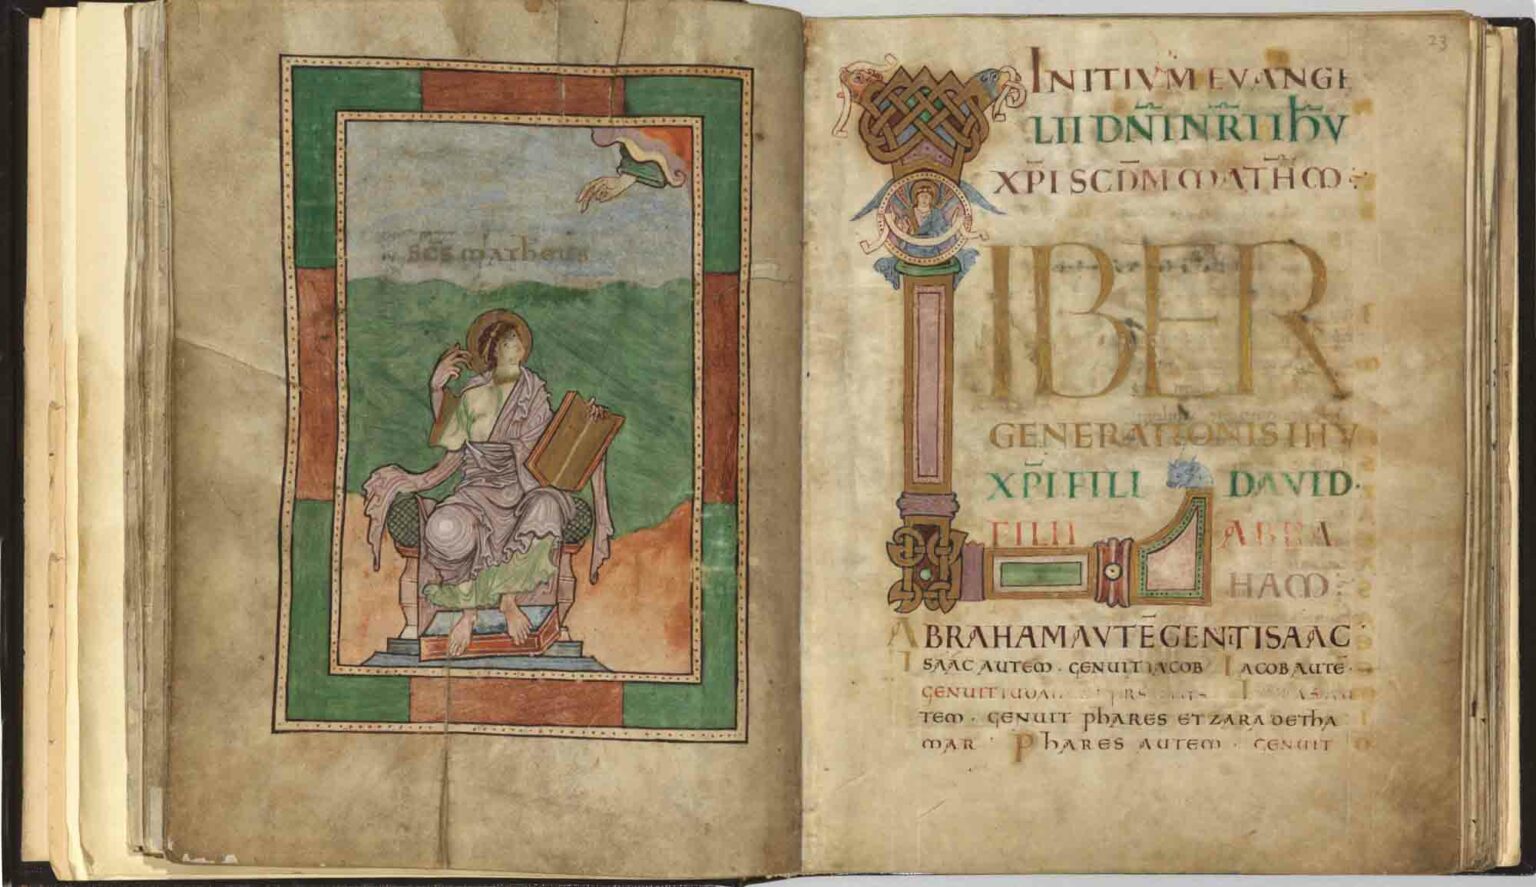 SC̄S MATHEUS
23
INITIVM EVANGE
LII DN̄I NR̄I IHV
XP̄I SCDM MATHM :
LIBER
GENERATIONIS IHV
XP̄I FILI DAVID.
FILII ABRA
HAM :
ABRAHAM AVTĒ GENT ISAAC.
ISAAC AUTEM · GENUIT IACOB IACOB AUTĒ.
GENUIT
TEM · GENUIT PHARES ET ZARA DE THA
MAR · PHARES AUTEM · GENUIT